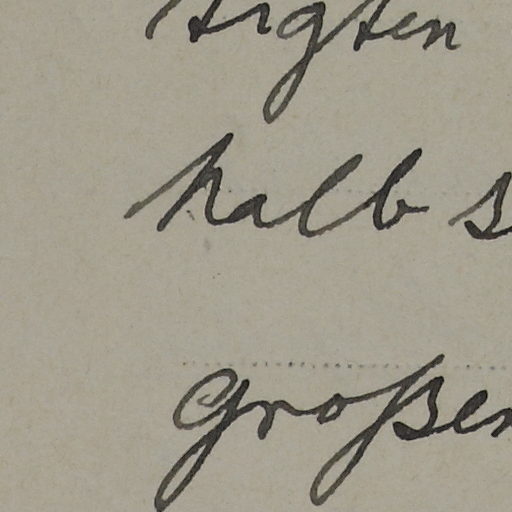 stigten
halb s
großen